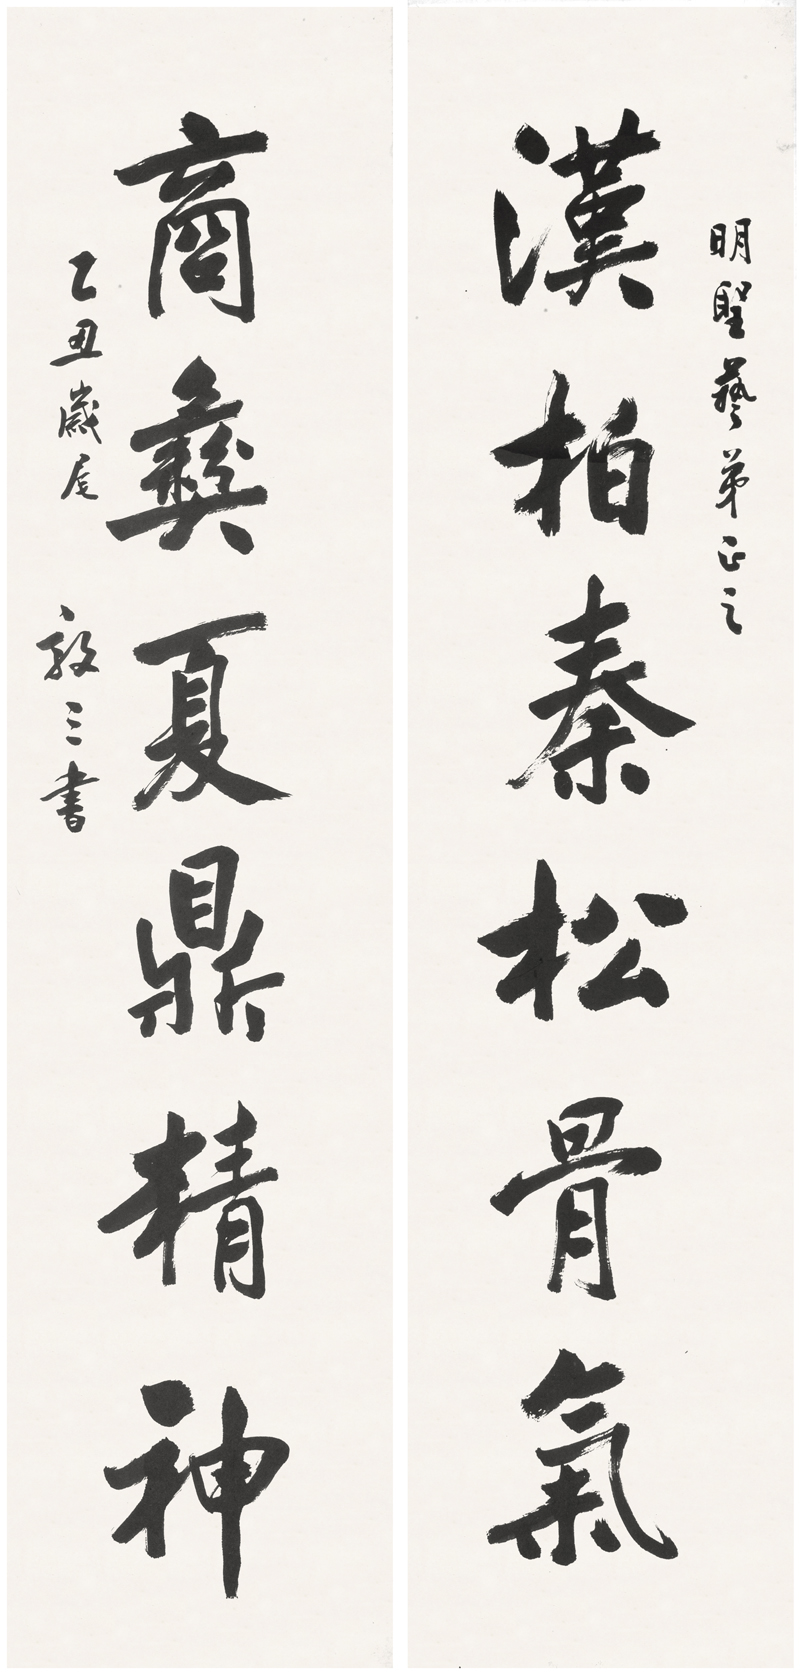 明聖藝弟正之
漢柏秦松骨氣
商彝夏鼎精神
乙丑歲尾
敦三書